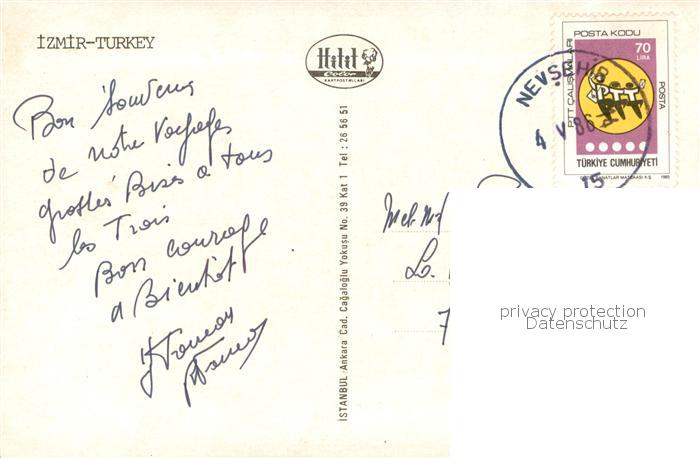 İZMİR-TURKEY
Hitit
Color
KARTPOSTALLARI
Bon souvenir
de notre voyages
grosses Bises a tous
les Trois
Bon courage
a Bientôt
İSTANBUL Ankara Cad. Cağaloğlu Yokuşu No. 39 Kat 1 Tel : 26 56 51
POSTA KODU
70
LİRA
PTT ÇALIŞMALARI
POSTA
PTT
TÜRKİYE CUMHURİYETİ
1985
NEVŞEHİR
4 V 86
15
La
7
privacy protection
Datenschutz